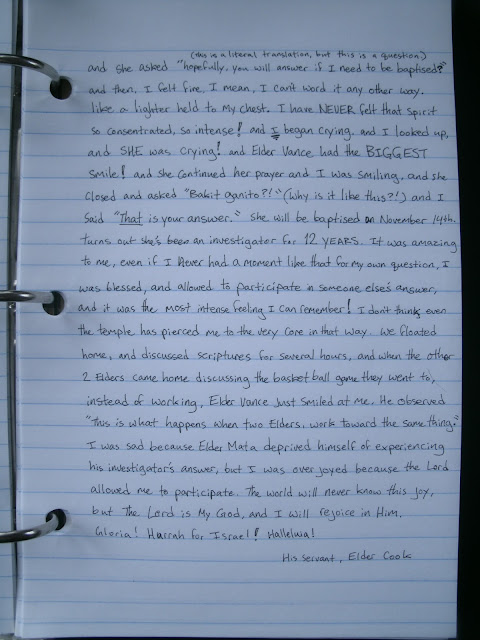 (this is a literal translation, but this is a question)
and she asked "hopefully, you will answer if I need to be baptised?"
and then, I felt fire, I mean, I can't word it any other way.
Like a lighter held to my chest. I have NEVER felt that spirit
so concentrated, so intense! and I began crying. and I looked up,
and SHE was crying! and Elder Vance had the BIGGEST
smile! and she continued her prayer and I was smiling. and she
closed and asked "Bakit ganito?!" (Why is it like this?!) and I
said "That is your answer." She will be baptised on November 14th.
Turns out she's been an investigator for 12 YEARS. It was amazing
to me, even if I never had a moment like that for my own question, I
was blessed, and allowed to participate in someone else's answer,
and it was the most intense feeling I can remember! I don't think even
the temple has pierced me to the very core in that way. We floated
home, and discussed scriptures for several hours, and when the other
2 Elders came home discussing the basketball game they went to,
instead of working, Elder Vance just smiled at me. He observed
"This is what happens when two Elders, work toward the same thing."
I was sad because Elder Mata deprived himself of experiencing
his investigator's answer, but I was overjoyed because the Lord
allowed me to participate. The world will never know this joy,
but The Lord is My God, and I will rejoice in Him.
Gloria! Hurrah for Israel! Halleluia!
His Servant, Elder Cook